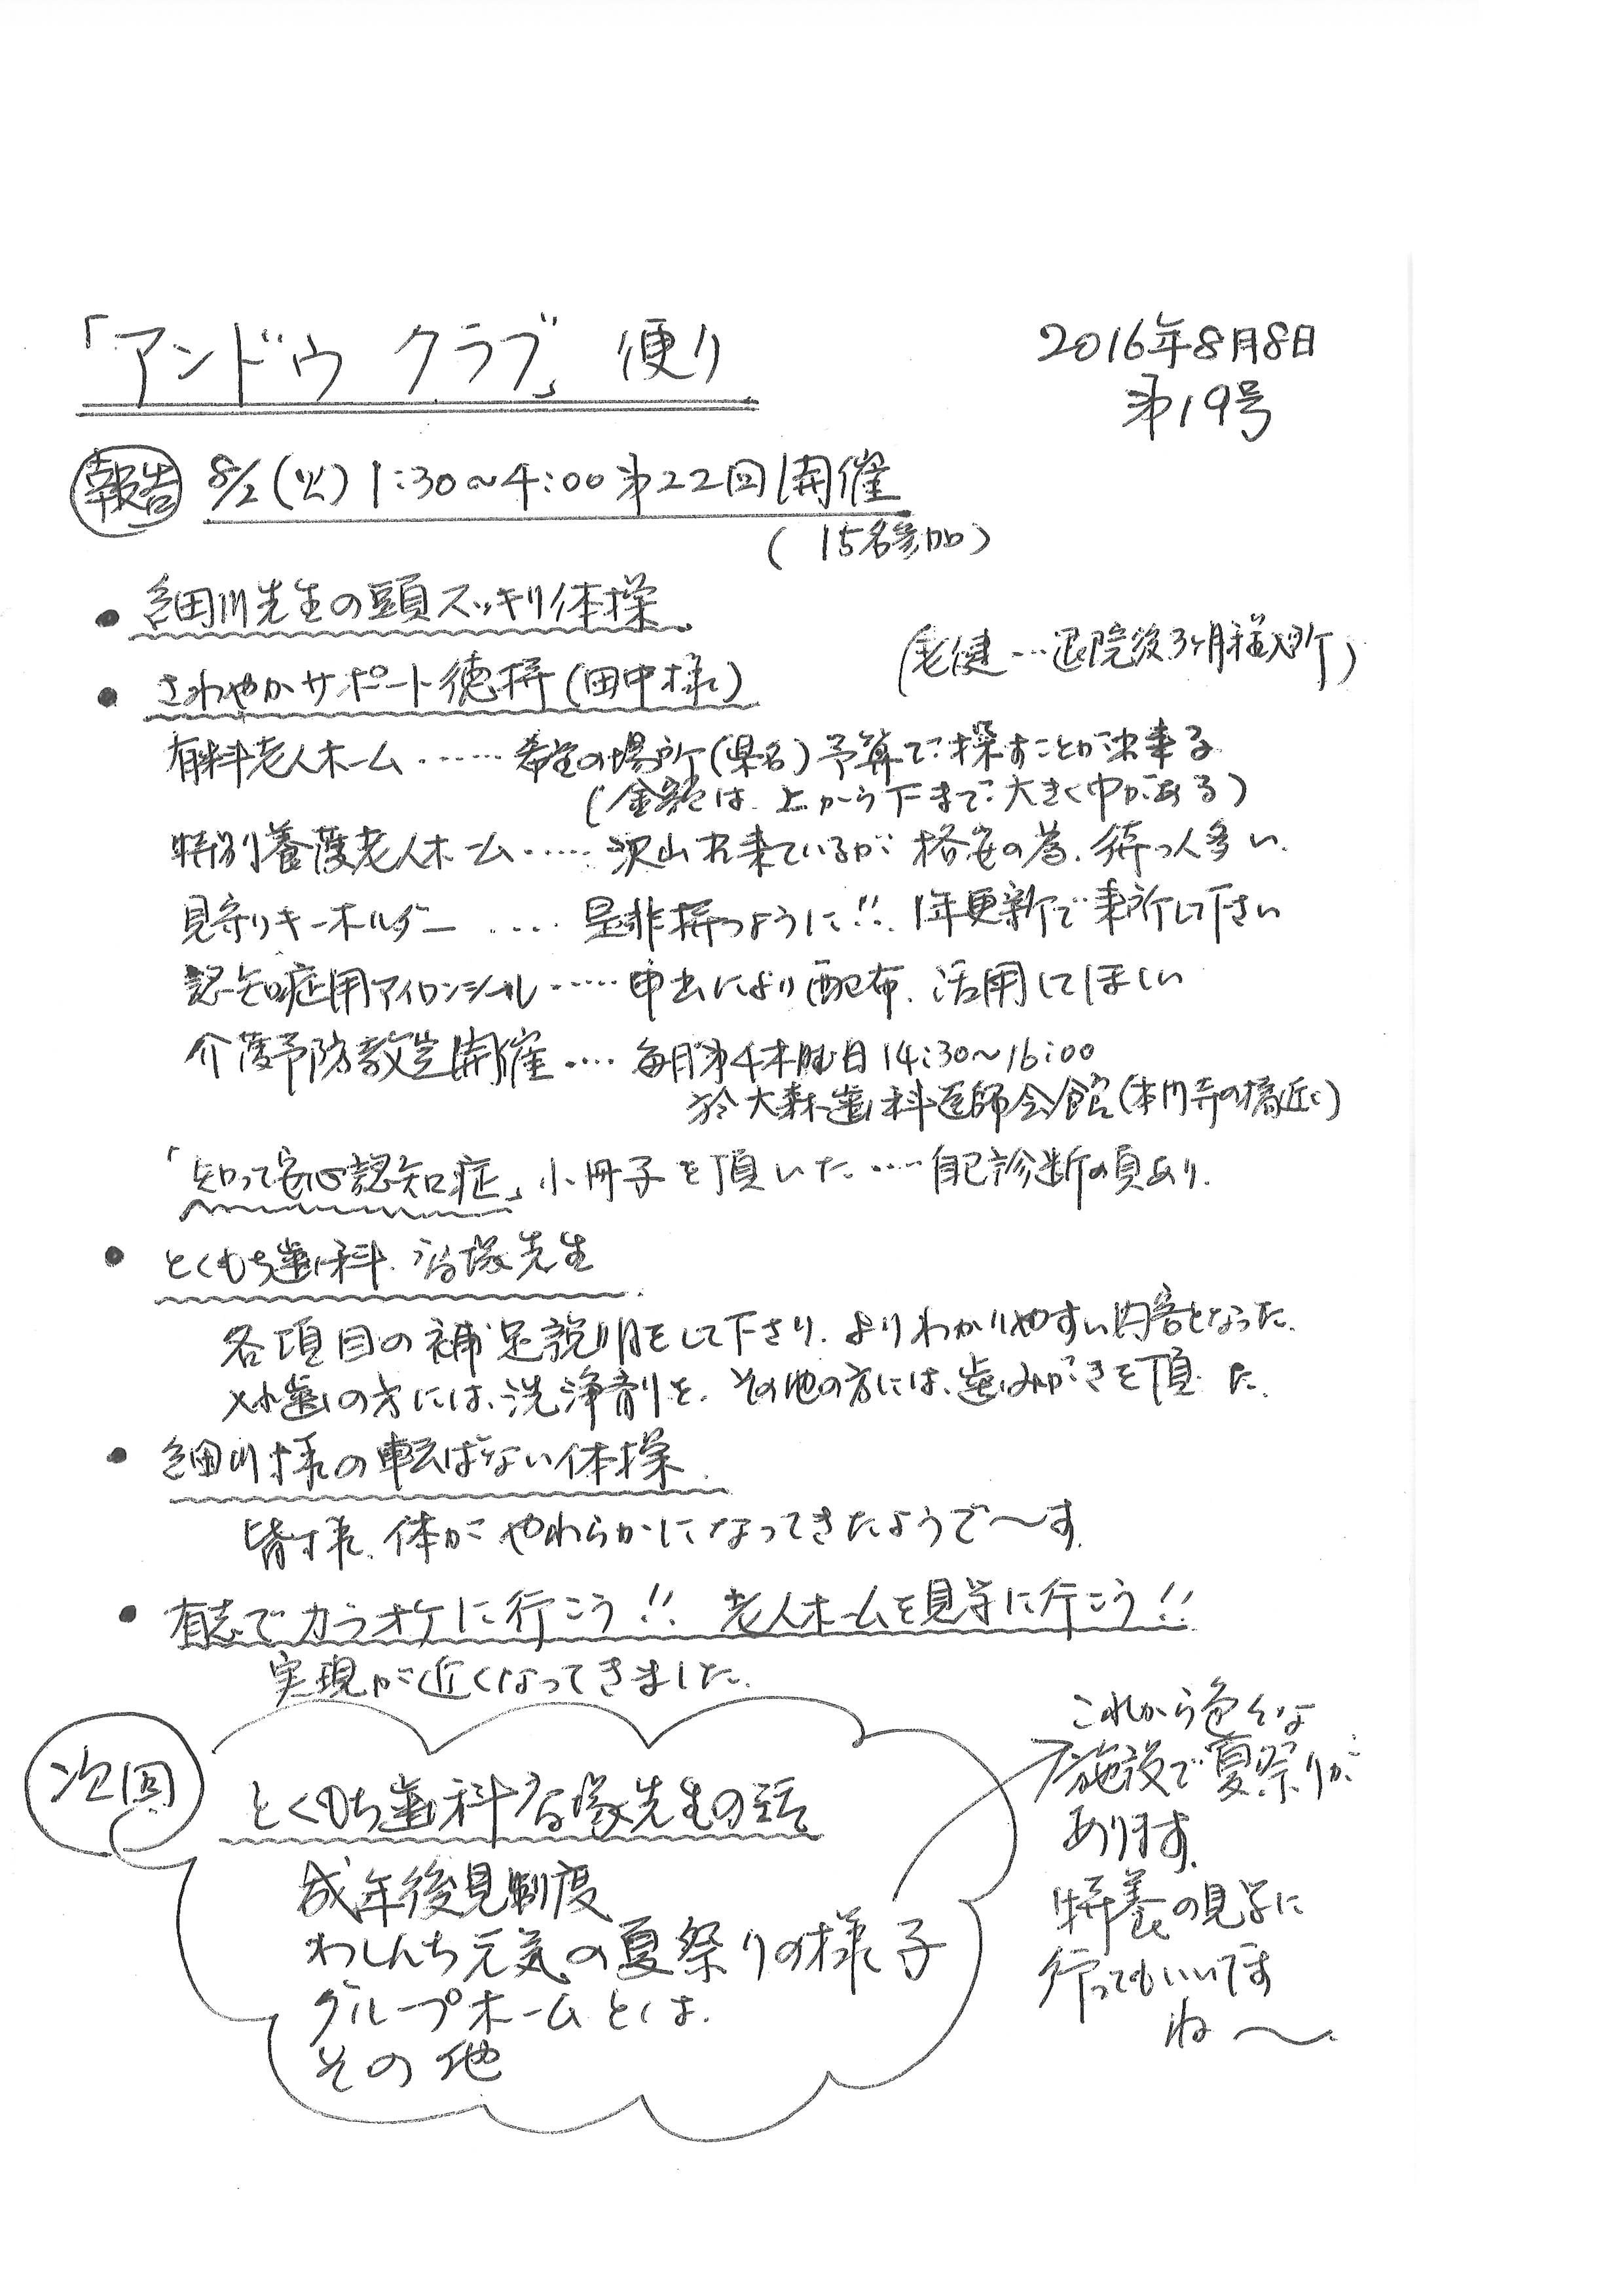 「アンドウ クラブ」便り
2016年8月8日
第19号
報告 8/2(火)1:30~4:00第22回開催
(15名参加)
・細川先生の頭スッキリ体操
(老健…退院後3ヶ月程入所)
・さわやかサポート徳持(田中様)
有料老人ホーム……希望の場所(県名)予算で探すことが出来る
(金額は上から下まで大きく巾がある)
特別養護老人ホーム……沢山出来ているが格安の為、待つ人多い.
見守りキーホルダー ‥‥是非持つように!! 1年更新で来所して下さい
認知症用アイロンシール……申出により配布、活用してほしい
介護予防教室開催‥‥毎月第4木曜日14:30~16:00
於大森歯科医師会館(本門寺の橋近く)
「知って安心認知症」小冊子を頂いた‥‥自己診断の頁あり.
・とくもち歯科 先生
各項目の補足説明をして下さり、よりわかりやすい内容となった.
入れ歯の方には、洗浄剤を、その他の方には、歯みがきを頂いた.
・細川様の転ばない体操
皆様、体がやわらかになってきたようで〜す.
・有志でカラオケに行こう!! 老人ホームを見学に行こう!!
実現が近くなってきました.
次回
とくもち歯科 先生の話
成年後見制度
わしんち元気の夏祭りの様子
グループホームとは.
その他
これから色々な
施設で夏祭りが
あります.
特養の見学に
行ってもいいです
ね〜.